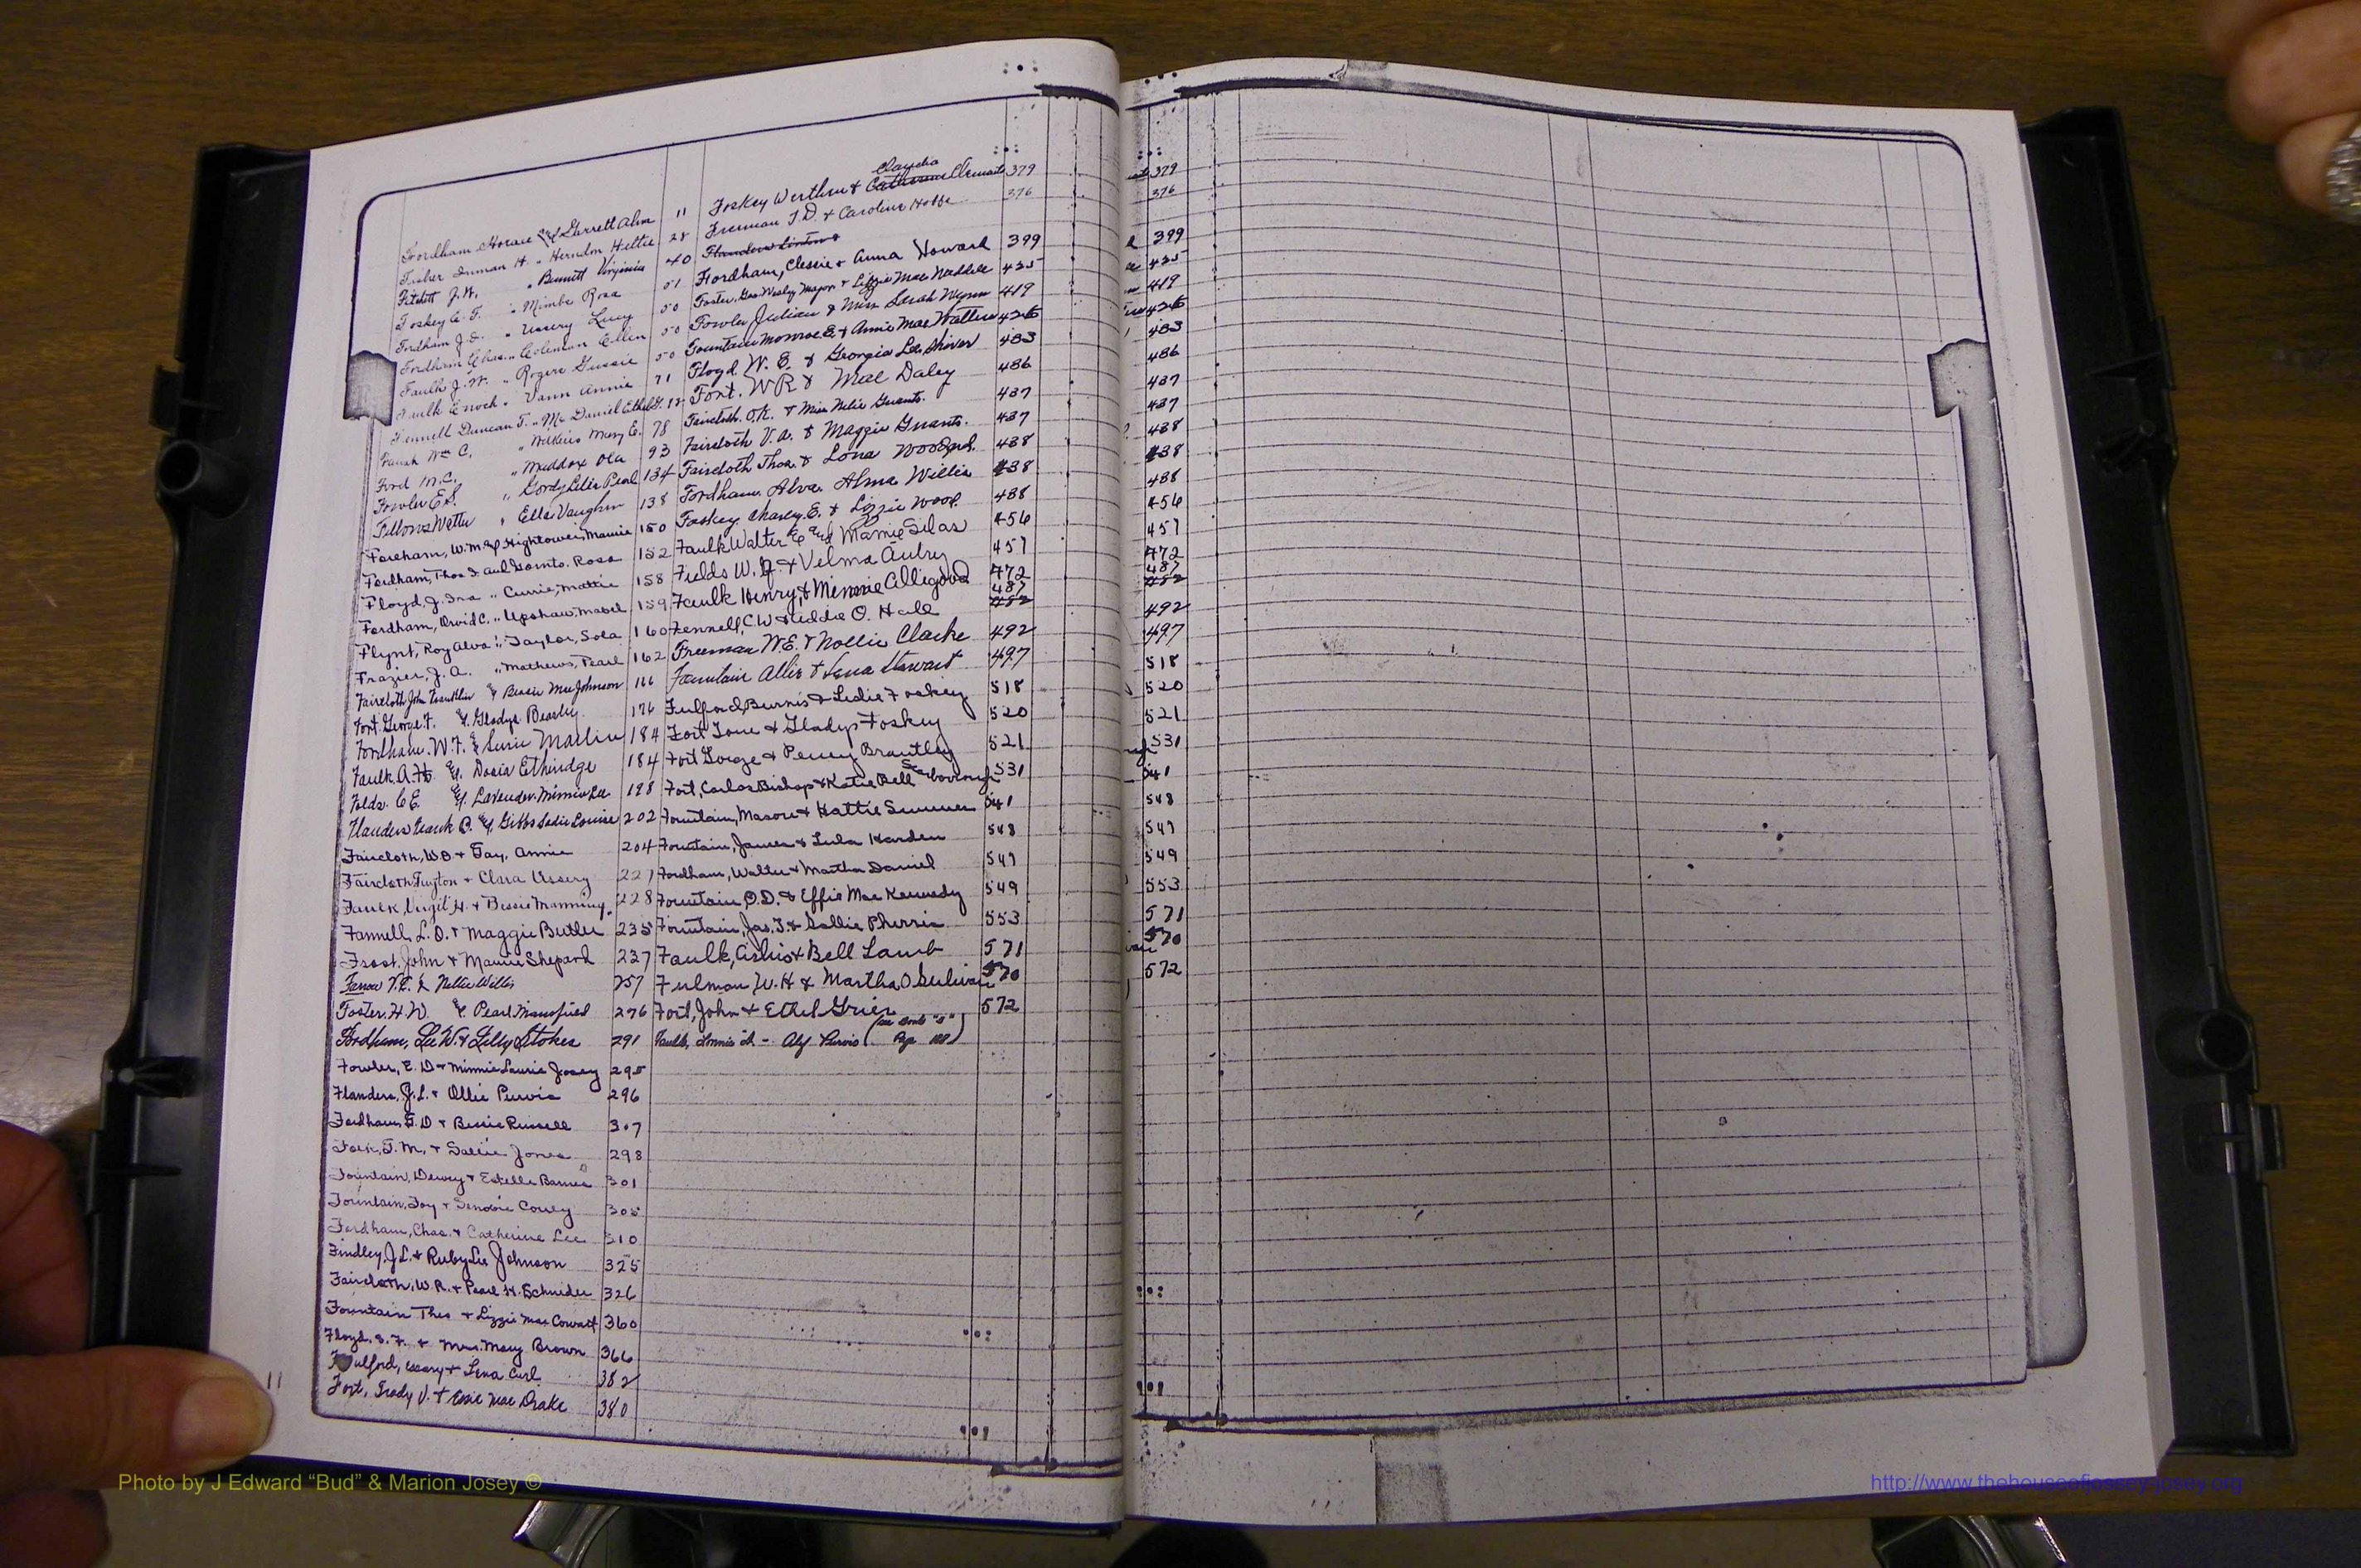 Fordham Horace & Garrett Alma 11
Fisher Inman H. " Herndon Hettie 28
Fitchett J.W. " Bennett Virginia 40
Foskey C. F. " Mimbs Rosa 51
Fordham J.D. " Ussery Lucy 50
Fordham Chas. " Coleman Ellen 50
Faulk J.W. " Rogers Gussie 50
Faulk Enoch " Vann Annie 71
Fennell Duncan T. " McDaniel Ethel G. 12
Farish Wm C. " Wilkins Mary E. 78
Ford M.C. " Maddox Ola 93
Fowler E.S. " Gordy Lelia Pearl 134
Fellows Walter " Ella Vaughn 138
Fordham, W.M. & Hightower, Mamie 150
Fordham, Thos I. and Hornto, Rosa 152
Floyd, J. Ira " Currie, Mattie 158
Fordham, Orvid C. " Upshaw, Mabel 159
Flynt, Roy Alva " Taylor, Sola 160
Frazier, J. A. " Mathews, Pearl 162
Faircloth John Franklin & Bessie Mae Johnson 166
Fort George F. & Gladys Beasley 176
Fordham W. F. & Susie Martin 184
Faulk A. H. & Dosia Ethridge 184
Folds C E. & Lavender Minnie Lee 198
Flanders Frank C. & Gibbs Sadie Louise 202
Faircloth, W B & Fay, Annie 204
Faircloth Fuyton & Clara Ussery 227
Faulk, Virgil H. & Bessie Manning 228
Fannell, L. O. & Maggie Butler 235
Frost, John & Mamie Shepard 237
Farrow V. E. & Nellie Willis 257
Foster, H. W. & Pearl Mansfield 276
Fordham, Lee W. & Lilly Stokes 291
Fowler, E. D & Minnie Laurie Josey 295
Flanders, J. L. & Ollie Purvis 296
Fordham, F. D & Bessie Russell 307
T. M. & Sallie Jones 298
Fountain, Dewey & Estelle Barnes 301
Fountain, Joy & Senobie Corley 305
Fordham, Chas. & Catherine Lee 310
Findley, J. L. & Ruby Lee Johnson 325
Faircloth, W. R. & Pearl H. Schnider 326
Fountain Theo & Lizzie Mae Cowart 360
Floyd, S. F. & Mrs. Mary Brown 366
Fulford, & Lena Curl 382
Fort, Grady V. & Essie Mae Drake 380
11
Claydia
Foskey Werthen & Catherine Stewart 379
Freeman T. D. & Caroline Hobbs 376
Flanders Linton &
Fordham, Clessie & Anna Howard 399
Foster, Geo. Wesley Major & Lizzie Mae Weddle 425
Fowler Julian & Miss Sarah Wynn 419
Fountain Monroe E. & Annie Mae Watters 426
Floyd W. E. & Georgia Lee Shiver 483
Fort. W R & Mae Daley 486
Faircloth. O.K. & Miss Nelie Grants. 437
Faircloth V. A. & Maggie Grants. 437
Faircloth Thos. & Lona Woodard. 438
Fordham. Alva. Alma Willis 438
Foskey, Charley. E. & Lizzie Wood. 488
Faulk Walter E and Mamie Silas 456
Fields W. J. & Velma Autry 457
Faulk Henry, & Minnie Alligood 472
487
Fennell, C W & Addie O. Hall 482
Freeman W. E. & Nollie Clarke 492
Fountain Allie & Lena Stewart 497
Fulford, Burnis & Ledie Foskey 518
Fort Tone & Gladys Foskey 520
Fort Goege & Penny Brantley 521
Fort, Carlos Bishop & Katie Bell Scarborough 531
Fountain, Mason & Hattie Summer 541
Fountain, James & Lula Harden 548
Fordham, Walter & Martha Daniel 549
Fountain, O. D. & Effie Mae Kennedy 549
Fountain, Jas. T. & Sallie Pherris 553
Faulk, Ashis & Bell Lamb 571
Fulmon W. H & Martha O Sulivan 570
Fort, John & Ethel Grier 572
Faulk, Lonnie - Alf Purvis (see book "S" Page 188)
379
376
399
425
419
426
483
486
437
437
438
438
488
456
457
472
487
482
492
497
518
520
521
531
541
548
549
549
553
571
570
572
Photo by J Edward “Bud” & Marion Josey ©
http://www.thehouseofjossey-josey.org